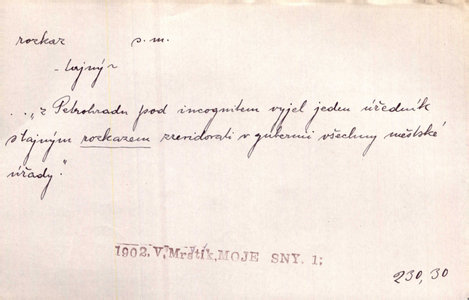 rozkaz s. m.
- tajný ~
..."z Petrohradu pod incognitem vyjel jeden úředník
s tajným rozkazem zrevidovati v gubernii všechny městské
úřady."
1902, V. Mrštík, MOJE SNY. I;
230, 30